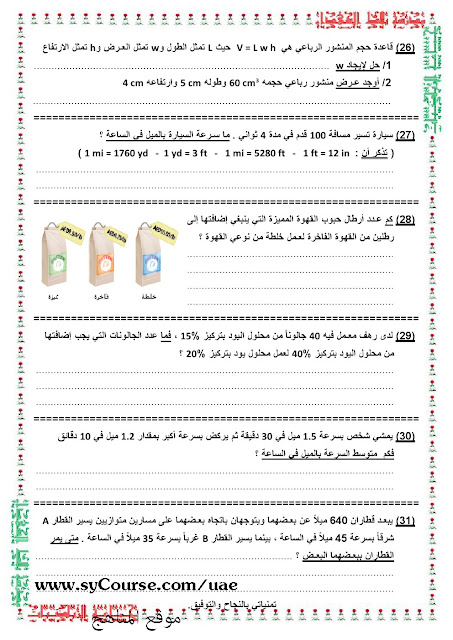 (26) قاعدة حجم المنشور الرباعي هي V = L w h حيث L تمثل الطول و w تمثل العرض و h تمثل الارتفاع
1/ حل لايجاد w
2/ أوجد عرض منشور رباعي حجمه 60 cm³ وطوله 5 cm وارتفاعه 4 cm
(27) سيارة تسير مسافة 100 قدم في مدة 4 ثواني . ما سرعة السيارة بالميل في الساعة ؟
( تذكر أن : 1 mi = 1760 yd - 1 yd = 3 ft - 1 mi = 5280 ft - 1 ft = 12 in )
(28) كم عدد أرطال حبوب القهوة المميزة التي ينبغي إضافتها إلى
رطلين من القهوة الفاخرة لعمل خلطة من نوعي القهوة ؟
خلطة
فاخرة
مميزة
(29) لدى رهف معمل فيه 40 جالوناً من محلول اليود بتركيز 15% ، فما عدد الجالونات التي يجب إضافتها
من محلول اليود بتركيز 40% لعمل محلول يود بتركيز 20% ؟
(30) يمشي شخص بسرعة 1.5 ميل في 30 دقيقة ثم يركض بسرعة أكبر بمقدار 1.2 ميل في 10 دقائق
فكم متوسط السرعة بالميل في الساعة ؟
(31) يبعد قطاران 640 ميلاً عن بعضهما ويتوجهان باتجاه بعضهما على مسارين متوازيين يسير القطار A
شرقاً بسرعة 45 ميلاً في الساعة ، بينما يسير القطار B غرباً بسرعة 35 ميلاً في الساعة . متى يمر
القطاران ببعضهما البعض ؟
www.syCourse.com/uae
تمنياتي بالنجاح والتوفيق
موقع المناهج